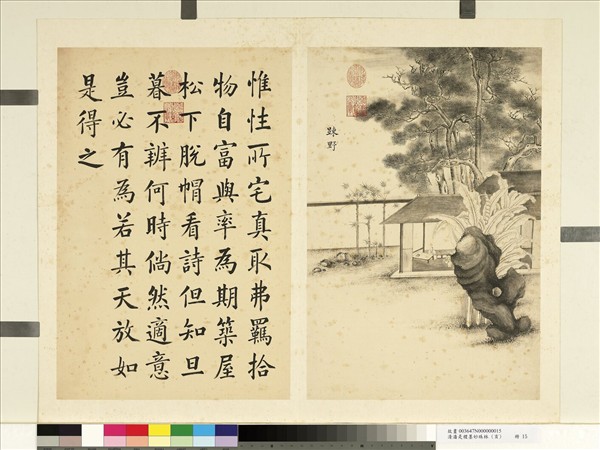 疎野
惟性所宅真取弗羈拾
物自富與率為期築屋
松下脫帽看詩但知旦
暮不辨何時倘然適意
豈必有為若其天放如
是得之
故畫 003647N000000015
冊 15